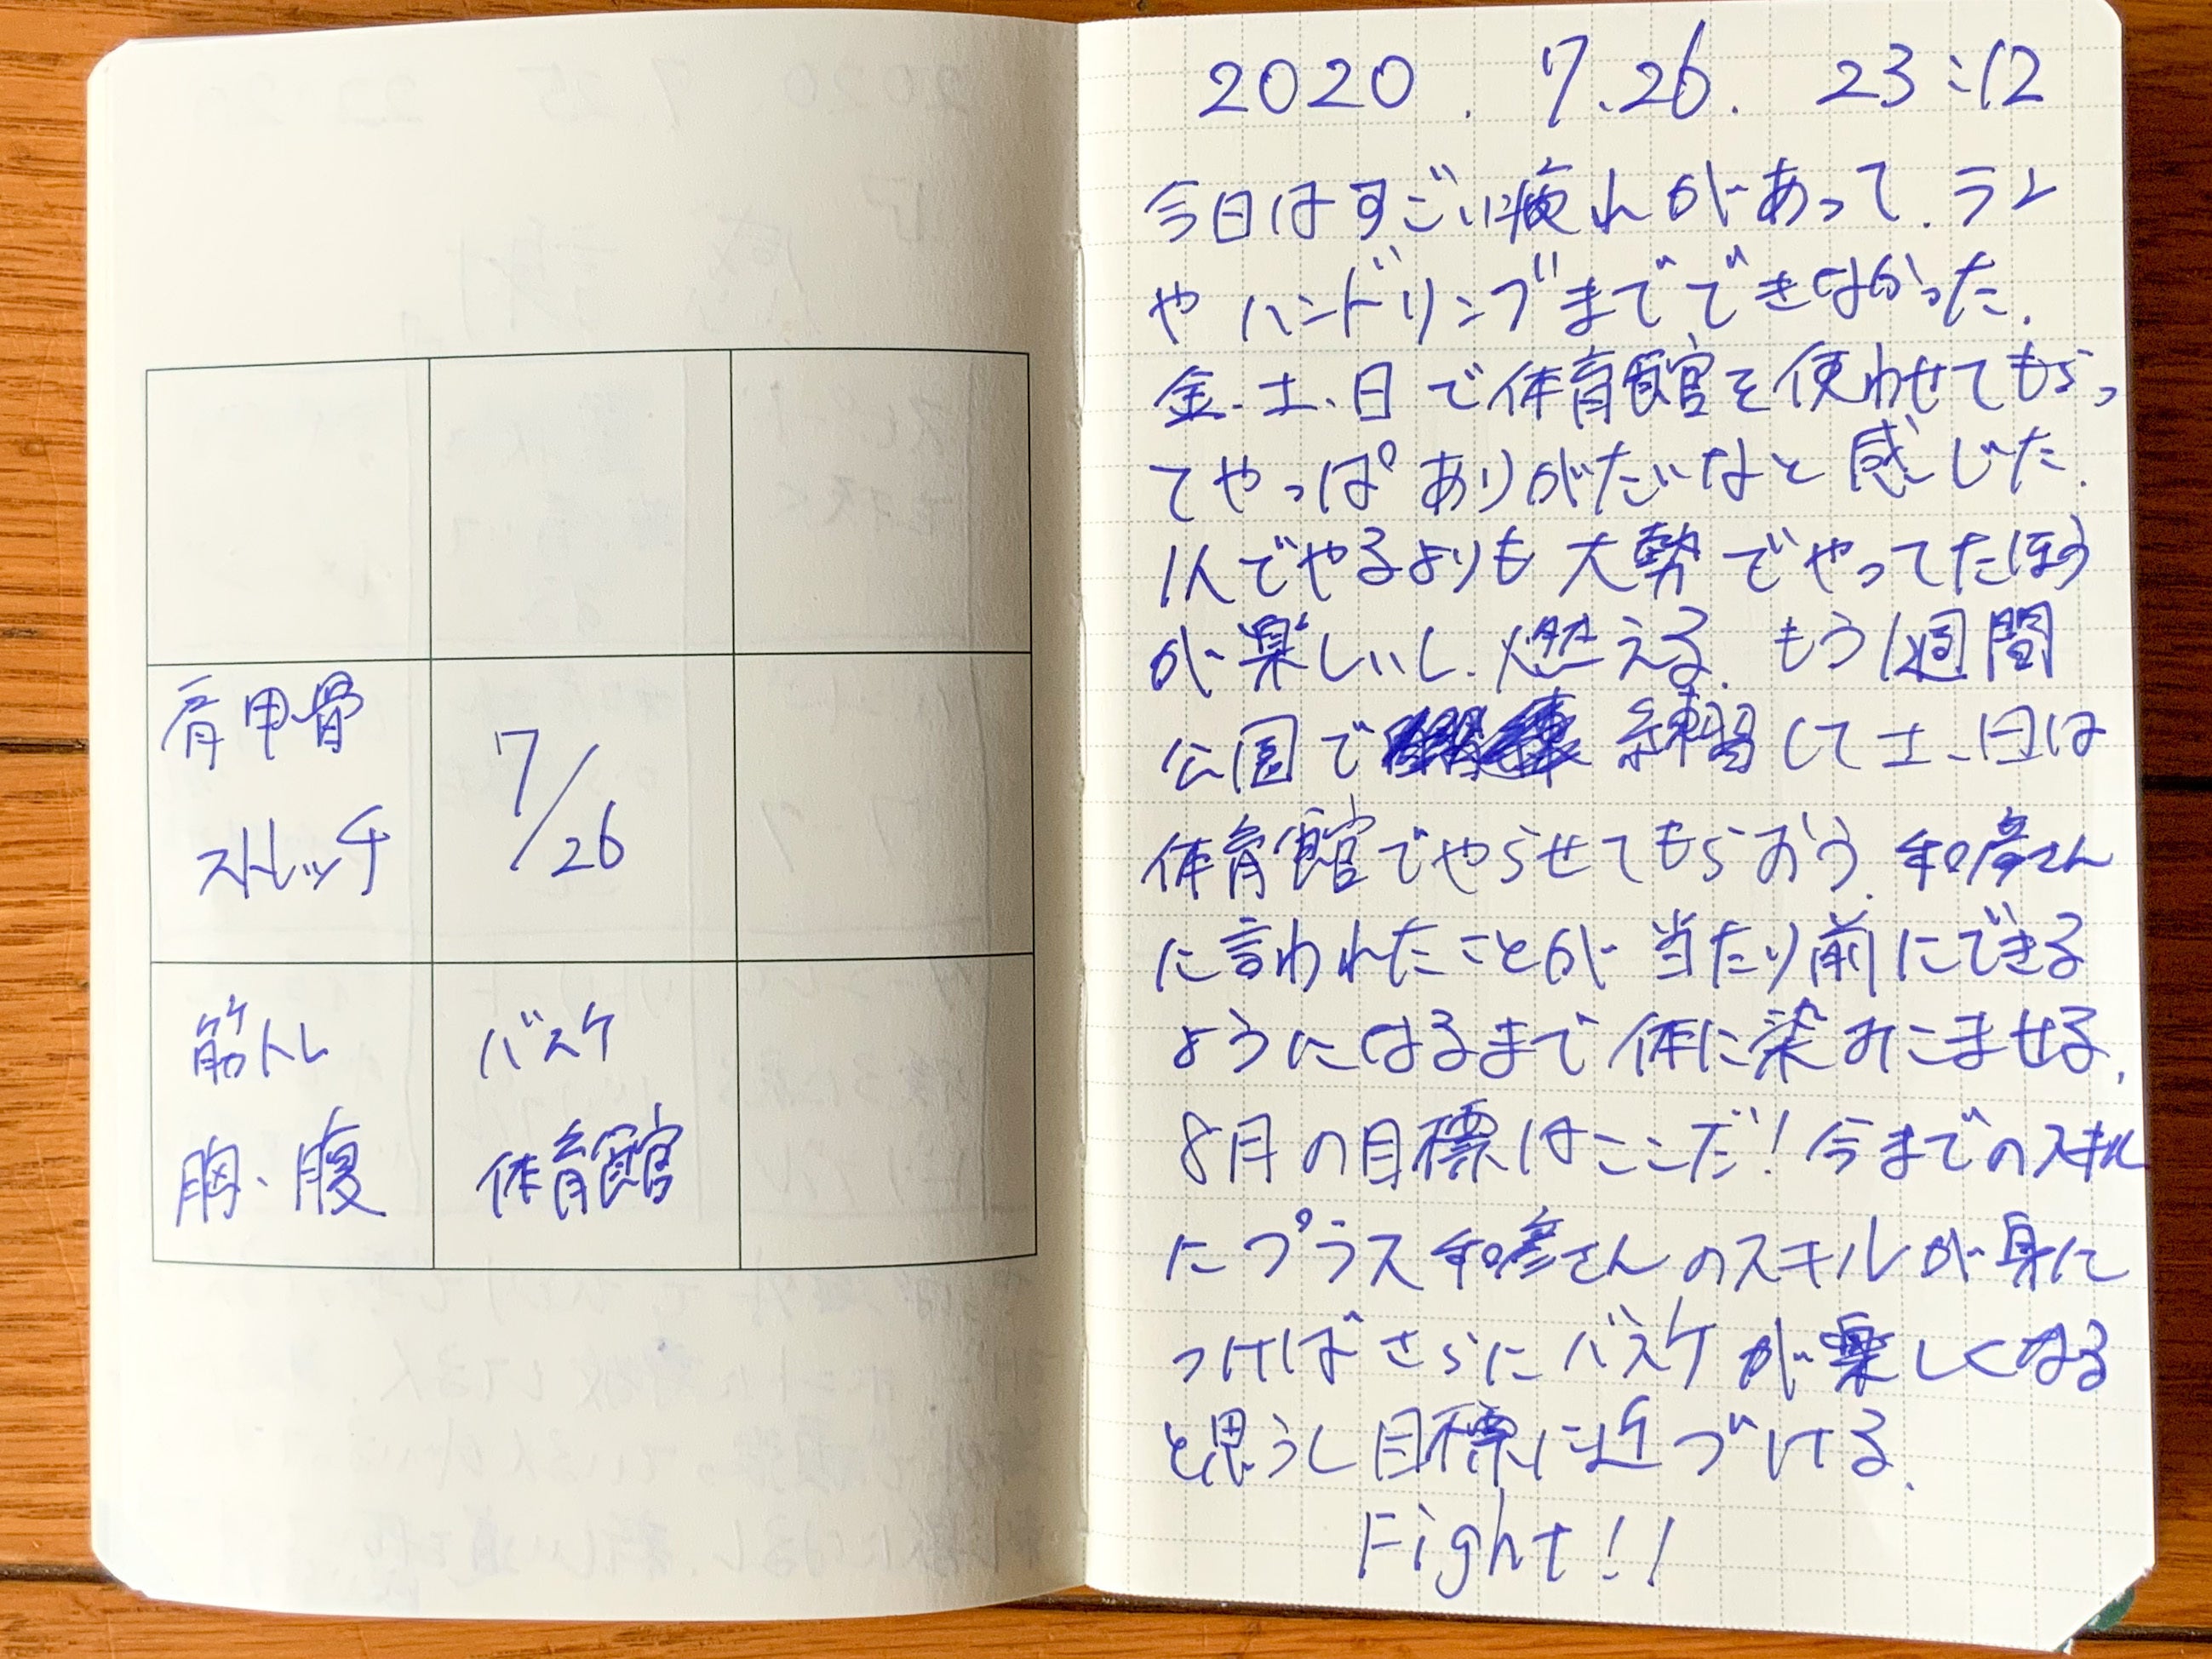 肩甲骨
ストレッチ
7/26
筋トレ
胸、腹
バスケ
体育館
2020. 7.26. 23:12
今日はすごい疲れがあって、ラン
やハンドリングまでできなかった.
金、土、日で体育館を使わせてもらっ
てやっぱありがたいなと感じた.
1人でやるよりも大勢でやってたほう
が楽しいし、燃える. もう1週間
公園で 練習して土、日は
体育館でやらせてもらおう. 和彦さん
に言われたことが当たり前にできる
ようになるまで体に染みこませる.
8月の目標はここだ! 今までのスキル
にプラス和彦さんのスキルが身に
つけばさらにバスケが楽しくなる
と思うし目標に近づける.
Fight!!